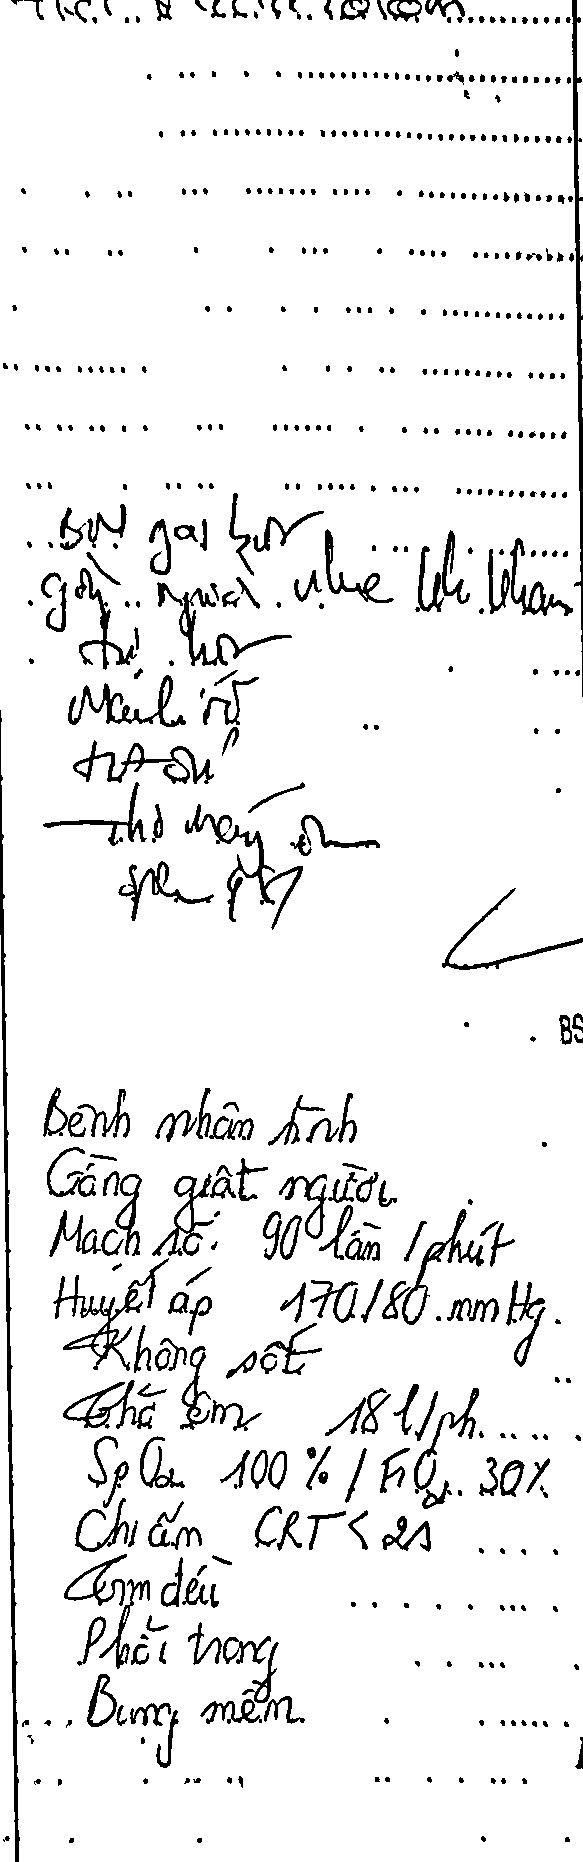 gồng người nhẹ khi khám
Mạch rõ
HA ổn
Thở máy êm
BS
Bệnh nhân tỉnh
Gồng giật người
Mạch rõ: 90 lần / phút
Huyết áp 170/80 mmHg.
Không sốt
Thở êm 18 l/ph
SpO2 100% / FiO2 30%
Chi ấm CRT < 2s
Tim đều
Phổi trong
Bụng mềm